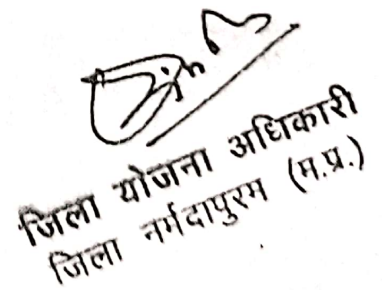 जिला योजना अधिकारी
जिला नर्मदापुरम (म.प्र.)